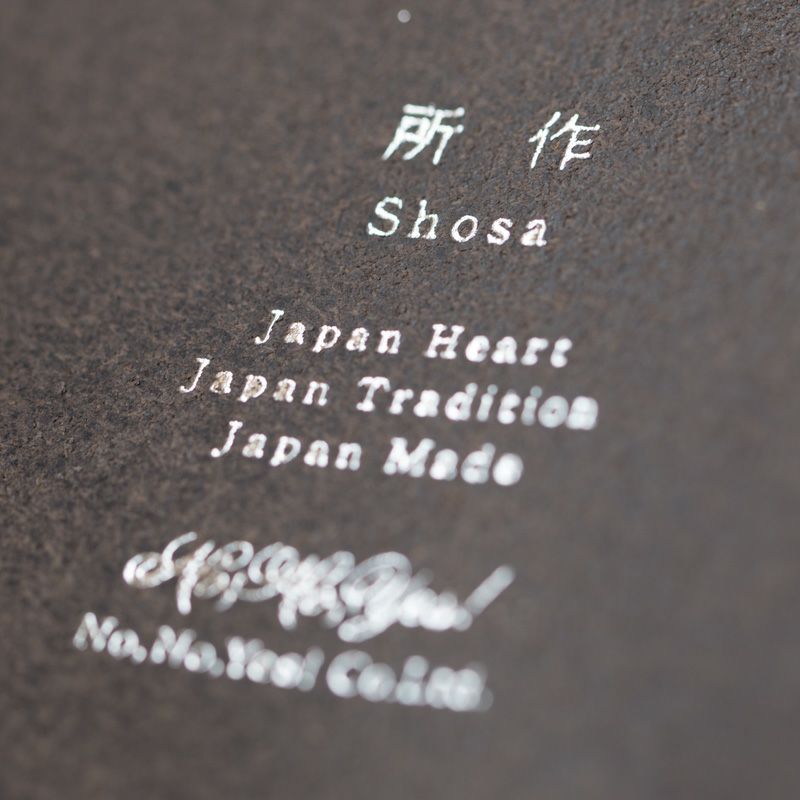 所作
Shosa
Japan Heart
Japan Tradition
Japan Made
No,No,Yes! Co.Ltd.